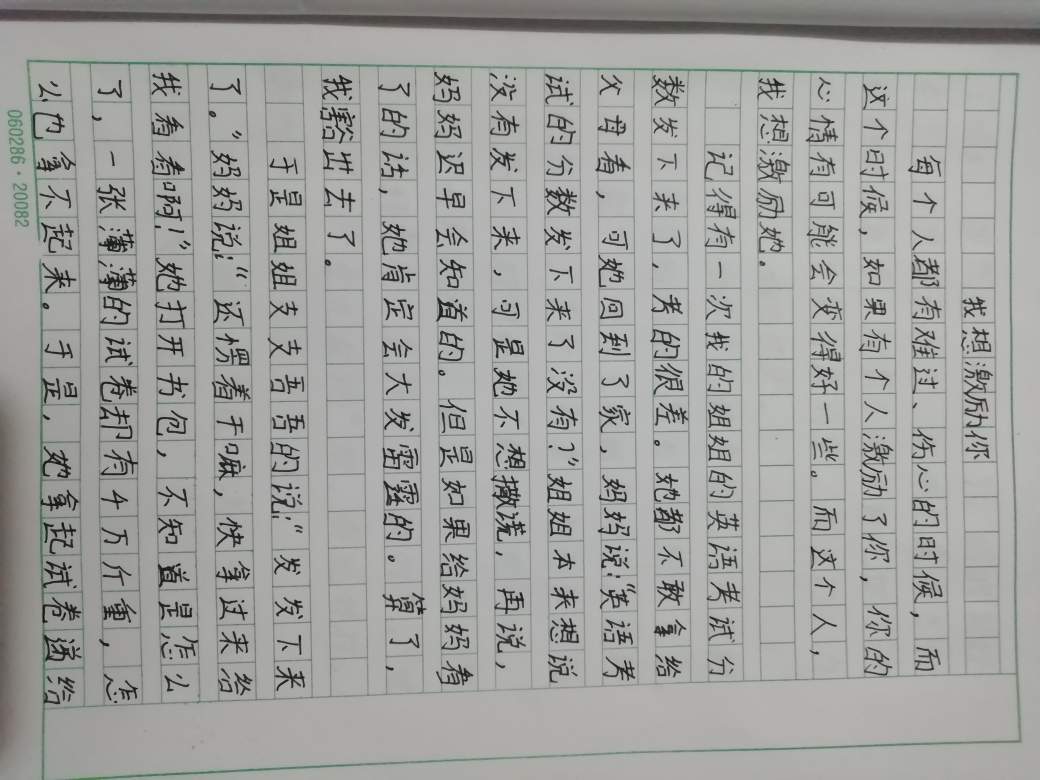 我想激励你
每个人都有难过、伤心的时候，而
这个时候，如果有个人激励了你，你的
心情有可能会变得好一些。而这个人，
我想激励她。
记得有一次我的姐姐的英语考试分
数发下来了，考的很差。她都不敢拿给
父母看，可她回到了家，妈妈说：“英语考
试的分数发下来了没有？”姐姐本来想说
没有发下来，可是她不想撒谎，再说，
妈妈迟早会知道的。但是如果给妈妈看
了的话，她肯定会大发雷霆的。算了，
我豁出去了。
于是姐姐支支吾吾的说：“发发下来
了。”妈妈说：“还愣着干嘛，快拿过来给
我看看啊！”她打开书包，不知道是怎么
了，一张薄薄的试卷却有4万斤重，怎
么也拿不起来。于是，她拿起试卷递给
060286·20082